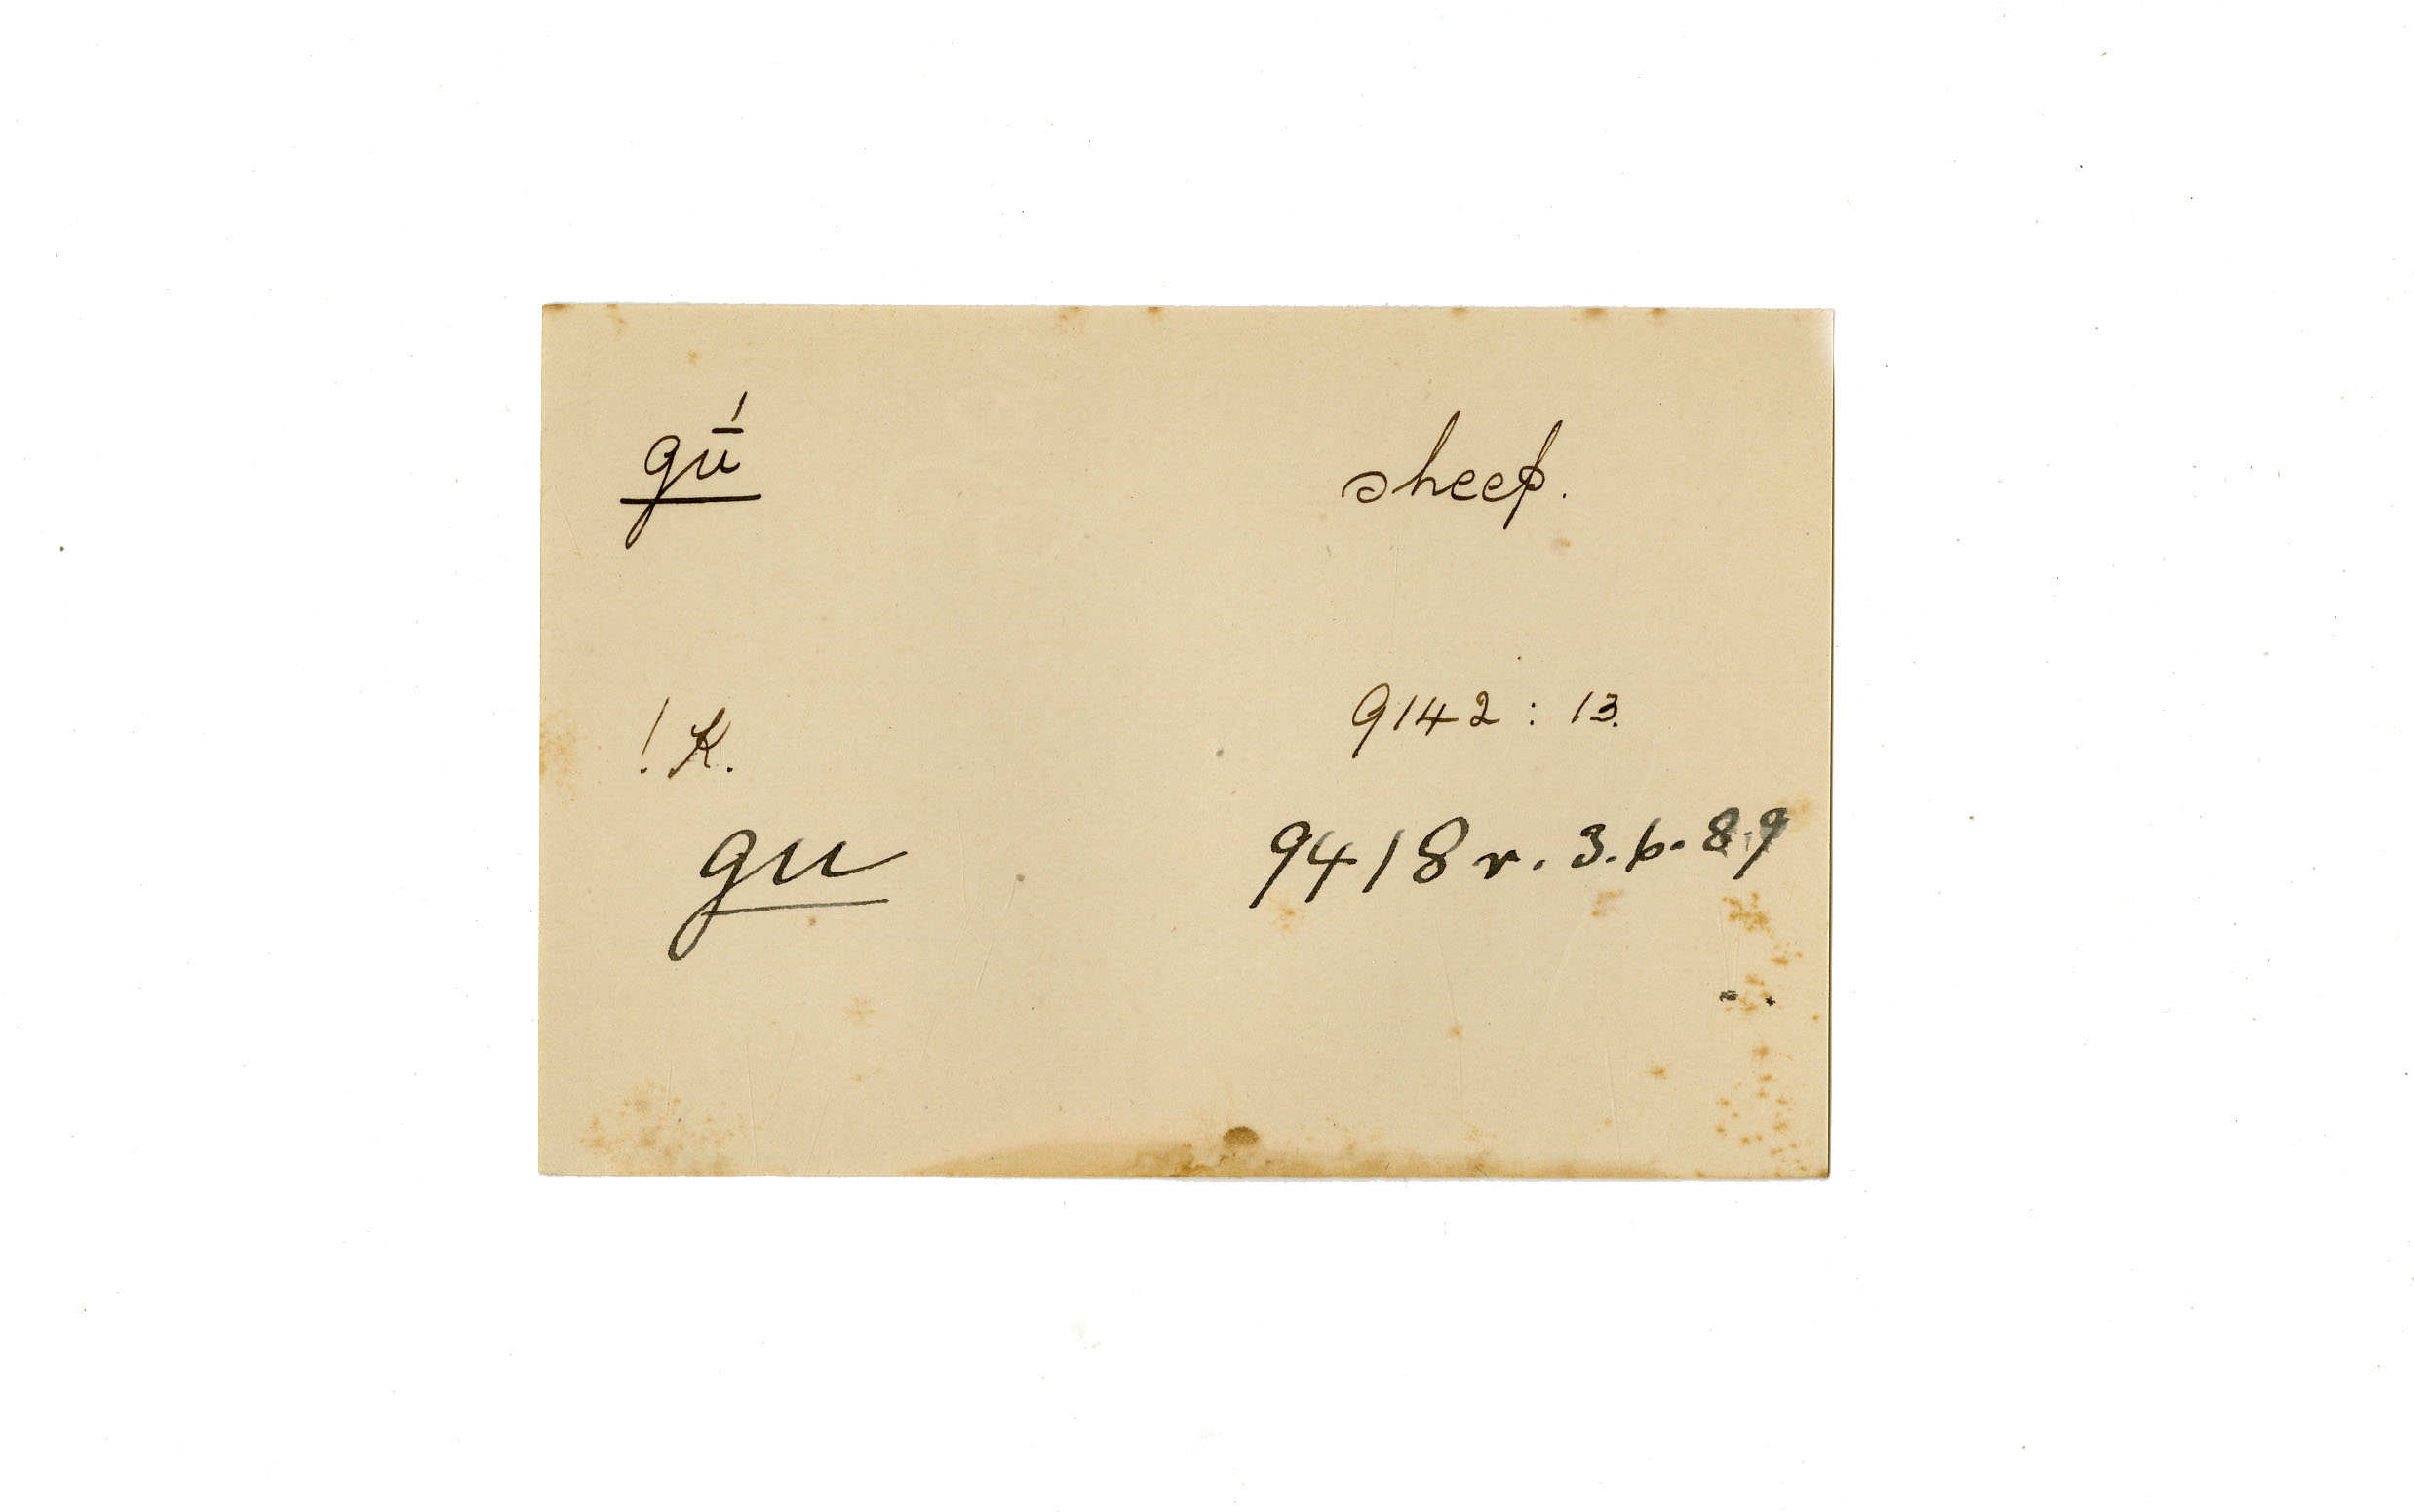 gū́ sheep.
! K. 9142 : 13.
gu 9418 r. 3. b. 89